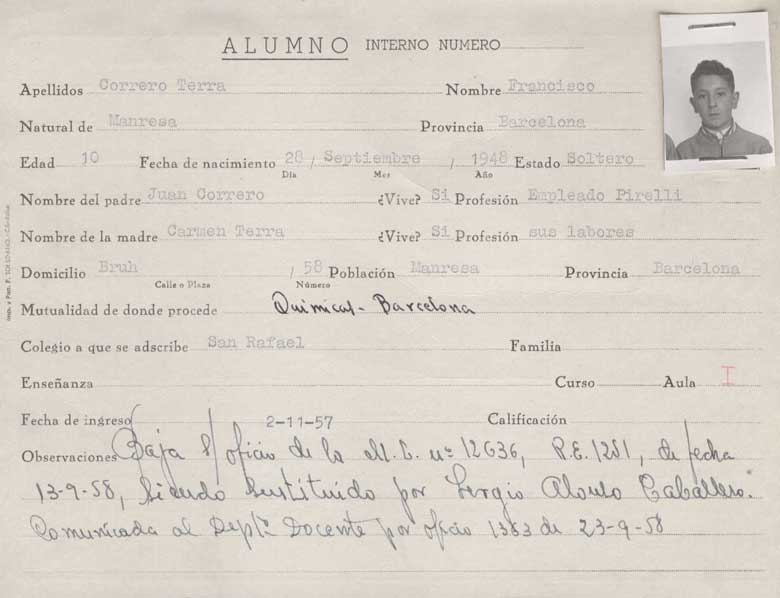 ALUMNO INTERNO NUMERO
Apellidos Correro Terra Nombre Francisco
Natural de Manresa Provincia Barcelona
Edad 10 Fecha de nacimiento 28 / Septiembre / 1948 Estado Soltero
Día Mes Año
Nombre del padre Juan Correro ¿Vive? Si Profesión Empleado Pirelli
Nombre de la madre Carmen Terra ¿Vive? Si Profesión sus labores
Domicilio Bruh / 58 Población Manresa Provincia Barcelona
Calle o Plaza Número
Mutualidad de donde procede Quimicas - Barcelona
Colegio a que se adscribe San Rafael Familia
Enseñanza Curso Aula I
Fecha de ingreso 2-11-57 Calificación
Observaciones Baja s/ oficio de la M.L. nº 12636, R.E. 1251, de fecha
13-9-58, siendo sustituido por Sergio Alonso Caballero.
Comunicada al Deptº Docente por oficio 1383 de 23-9-58